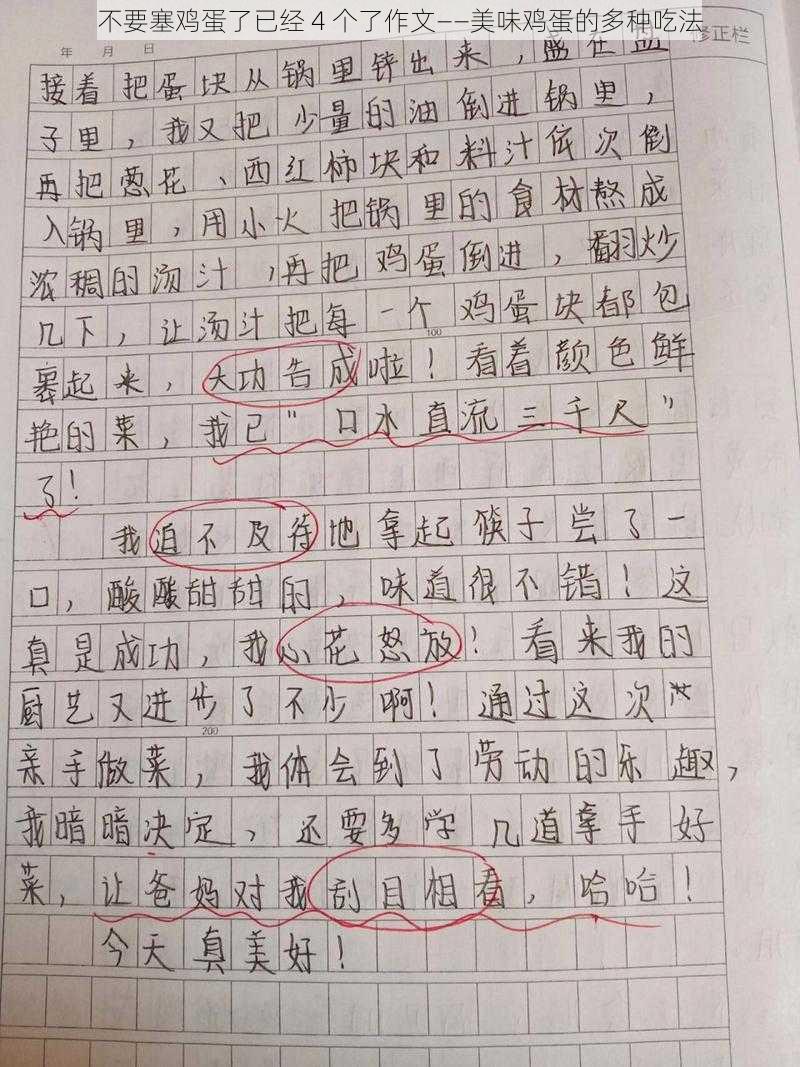 不要塞鸡蛋了已经 4 个了作文——美味鸡蛋的多种吃法
年 月 日
修正栏
接着把蛋块从锅里锌出来，盛在
子里，我又把少量的油倒进锅里，
再把葱花、西红柿块和料汁依次倒
入锅里，用小火把锅里的食材熬成
浓稠的汤汁，再把鸡蛋倒进，翻炒
几下，让汤汁把每一个鸡蛋块都包
100
裹起来，大功告成啦！看着颜色鲜
艳的菜，我已"口水直流三千尺"
了！
我迫不及待地拿起筷子尝了一
口，酸酸甜甜的，味道很不错！这
真是成功，我心花怒放！看来我的
厨艺又进步了不少啊！通过这次
200
亲手做菜，我体会到了劳动的乐趣，
我暗暗决定，还要多学几道拿手好
菜，让爸妈对我刮目相看，哈哈！
今天真美好！